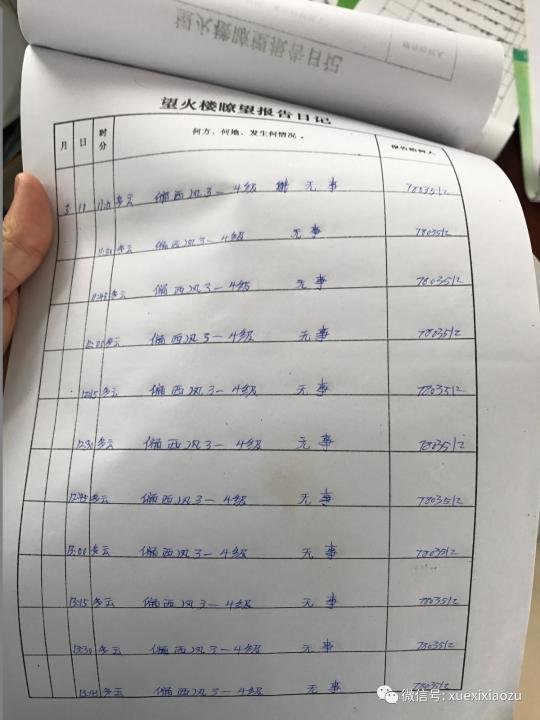 望火楼瞭望报告日记
望火楼瞭望报告日记
月 日 时分 何方、何地、发生何情况. 报告给何人
3 11 多云 偏西风3—4级 无事 7803512
多云 偏西风3—4级 无事 7803512
11:45 多云 偏西风3—4级 无事 7803512
12:00 多云 偏西风3—4级 无事 7803512
12:15 多云 偏西风3—4级 无事 7803512
12:30 多云 偏西风3—4级 无事 7803512
12:45 多云 偏西风3—4级 无事 7803512
13:00 多云 偏西风3—4级 无事 7803512
13:15 多云 偏西风3—4级 无事 7803512
13:30 多云 偏西风3—4级 无事 7803512
13:45 多云 偏西风3—4级 无事 7803512
微信号: xuexixiaozu